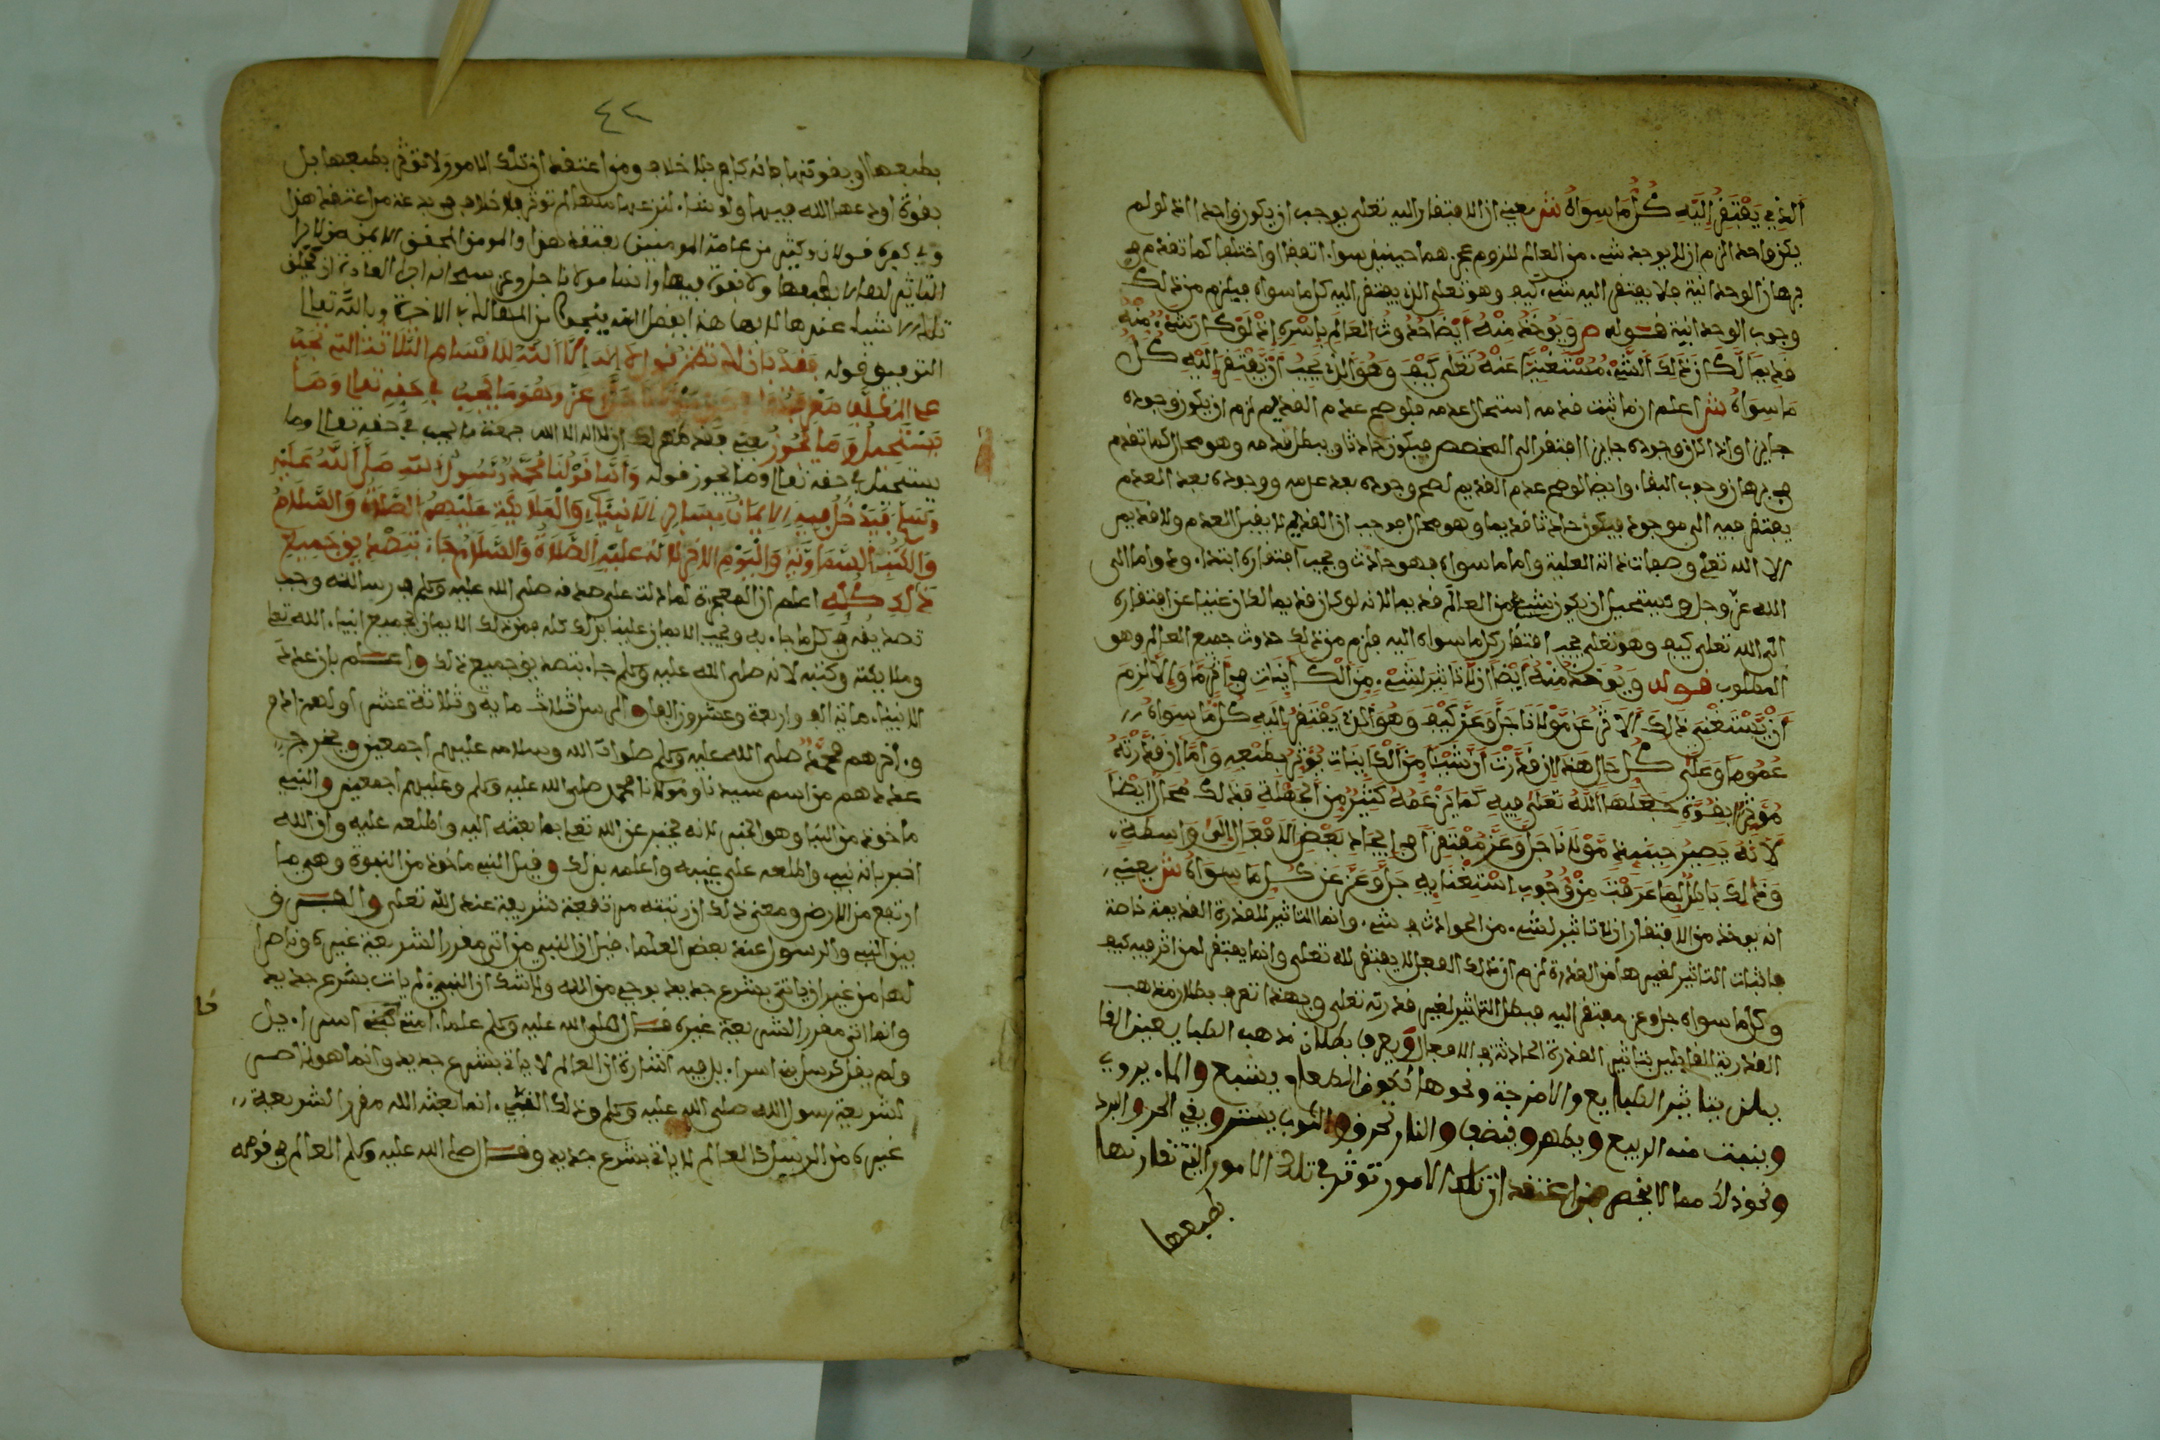 الذي يفتقر إليه كل ما سواه ش يعني ان الافتقار اليه تعلى يوجب ان يكون واحدا اذ لو لم
يكن واحدا لزم ان لا يوجد شيء من العالم للزوم عجزهما حينئذ سواء اتفقا او اختلفا كما تقدم في
برهان الوحدانية فلا يفتقر اليه شيء كيف وهو تعلى الذي يفتقر اليه كل ما سواه فيلزم من ذلك
وجوب الوحدانية قوله ص ويؤخذ منه أيضا حدوث العالم بأسره إذ لو كان شيء منه
قديما لكان ذلك الشيء مستغنيا عنه تعلى كيف وهو الذي يجب أن يفتقر إليه كل
ما سواه ش اعلم ان ما ثبت قدمه استحال عدمه فلو صح عدم القديم لزم ان يكون وجوده
جايزا واذا كان وجوده جايزا افتقر الى المخصص فيكون حادثا ويبطل قدمه وهو محال كما تقدم
في برهان وجوب البقا وايضا لو صح عدم القديم لصح وجوده بعد عدمه ووجوده بعد العدم
يفتقر فيه الى موجود فيكون حادثا قديما وهو محال فوجب ان القديم لا يقبل العدم ولا قديم
الا الله تعلى وصفات ذاته العلية واما ما سواه فهو حادث ويجب افتقاره ابتداء ودواما الى
الله عز وجل ويستحيل ان يكون شيء من العالم قديما لانه لو كان قديما لكان غنيا عن افتقاره
الى الله تعلى كيف وهو تعلى يجب افتقار كل ما سواه اليه فلزم من ذلك حدوث جميع العالم وهو
المطلوب قوله ويؤخذ منه أيضا أن لا تاثير لشيء من الكاينات في أثر ما وإلا لزم
أن يستغني ذلك الأثر عن مولانا جل وعز كيف وهو الذي يفتقر إليه كل ما سواه
عموما وعلى كل حال هذا إن قدرت أن شيئا من الكاينات يؤثر بطبعه وأما إن قدرته
مؤثرا بقوة جعلها الله تعلى فيه كما يزعمه كثير من الجهلة فذلك محال أيضا
لأنه يصير حينئذ مولانا جل وعز مفتقرا في إيجاد بعض الأفعال إلى واسطة
وذلك باطل لما عرفت من وجوب استغنايه جل وعز عن كل ما سواه ش يعني
انه يوخذ من الافتقار ان لا تاثير لشيء من الحوادث في شيء وانما التاثير للقدرة القديمة خاصة
فاثبات التاثير لغيرها من القدرة لزم ان ذلك الفعل لا يفتقر لله تعلى وانما يفتقر لمن اثر فيه كيف
وكل ما سواه جل وعز مفتقر اليه فبطل التاثير لغير قدرته تعلى وبهذا تعرف بطلان مذهب
القدرية القايلين بتاثير القدرة الحادثة في الافعال ويعرف بطلان مذهب الطبايعيين القا
يلين بتاثير الطبايع والامزجة ونحوها ككون الطعام يشبع والماء يروي
وينبت منه الربيع ويطهر وينضف والنار تحرق والثوب يستر ويقي الحر والبرد
ونحو ذلك مما لا ينحصر فمن اعتقد ان تلك الامور توثر في تلك الامور التي تقارنها
بطبعها
٤٢
بطبعها او بقوتها فانه كافر بلا خلاف ومن اعتقد ان تلك الامور لا توثر بطبعها بل
بقوة اودعها الله فيها ولو شاء لنزعها منها لم توثر فلا خلاف في بدعة من اعتقد هذا
وفي كفره قولان وكثير من عامة المومنين يعتقد هذا والمومن المحقق الايمن من لا يرا
التاثير لها لا بطبعها ولا بقوة فيها وانما مولانا جل وعز سبحانه اجرى العادة ان يخلق
تلك الاشياء عندها لا بها هذا بفضل الله ينجو من المهالك في الاخرة وبالله تعالى
التوفيق قوله فقد بان لك تضمن قول لا إله إلا الله للأقسام الثلاثة التي تجب
على المكلف معرفتها في حق مولانا جل وعز وهو ما يجب في حقه تعالى وما
يستحيل وما يجوز يعني فقد ظهر لك ان لا اله الا الله جمعت ما يجب في حقه تعالى وما
يستحيل في حقه تعالى وما يجوز قوله وأما قولنا محمد رسول الله صلى الله عليه
وسلم فيدخل فيه الإيمان بساير الأنبياء والملايكة عليهم الصلاة والسلام
والكتب السماوية واليوم الآخر لأنه عليه الصلاة والسلام جاء بتصديق جميع
ذلك كله اعلم ان المعجزة لما دلت على صدقه صلى الله عليه وسلم في رسالته وجب
تصديقه في كل ما جاء به ويجب الايمان علينا بذلك كله فمن ذلك الايمان بجميع انبياء الله تعا
وملايكته وكتبه لانه صلى الله عليه وسلم جاء بتصديق جميع ذلك واعلم بان عدة
الانبياء ماية الف واربعة وعشرون الفا والرسل ثلاث ماية وثلاثة عشر اولهم ادم
واخرهم محمد صلى الله عليه وسلم صلوات الله وسلامه عليهم اجمعين ويخرج
عددهم من اسم سيدنا ومولانا محمد صلى الله عليه وسلم وعليهم اجمعين والنبي
ماخوذ من النبا وهو الخبر لانه يخبر عن الله تعا بما بعثه اليه واطلعه عليه وان الله
اخبر بانه نبي واطلعه على غيبه واعلمه بذلك وقيل النبي ماخوذ من النبوة وهي ما
ارتفع من الارض ومعنى ذلك ان رتبته مرتفعة شريفة عند الله تعلى والفرق
بين النبي والرسول عند بعض العلماء قيل ان النبي من اتى مقررا لشريعة غيره وناصرا
لها من غير ان ياتي بشرع جديد بوحي من الله ولا شك ان النبي لم يات بشرع جديد
وانما اتى مقررا لشريعة غيره قال صلى الله عليه وسلم علماء امتي كنبيء اسراءيل
ولم يقل كرسل بني اسراءيل فيه اشارة ان العالم لا ياتي بشرع جديد وانما هو ناصر
لشريعة رسول الله صلى الله عليه وسلم وذلك النبيء انما بعثه الله مقررا لشريعة
غيره من الرسل فالعالم لا ياتي بشرع جديد وقال صلى الله عليه وسلم العالم في قومه